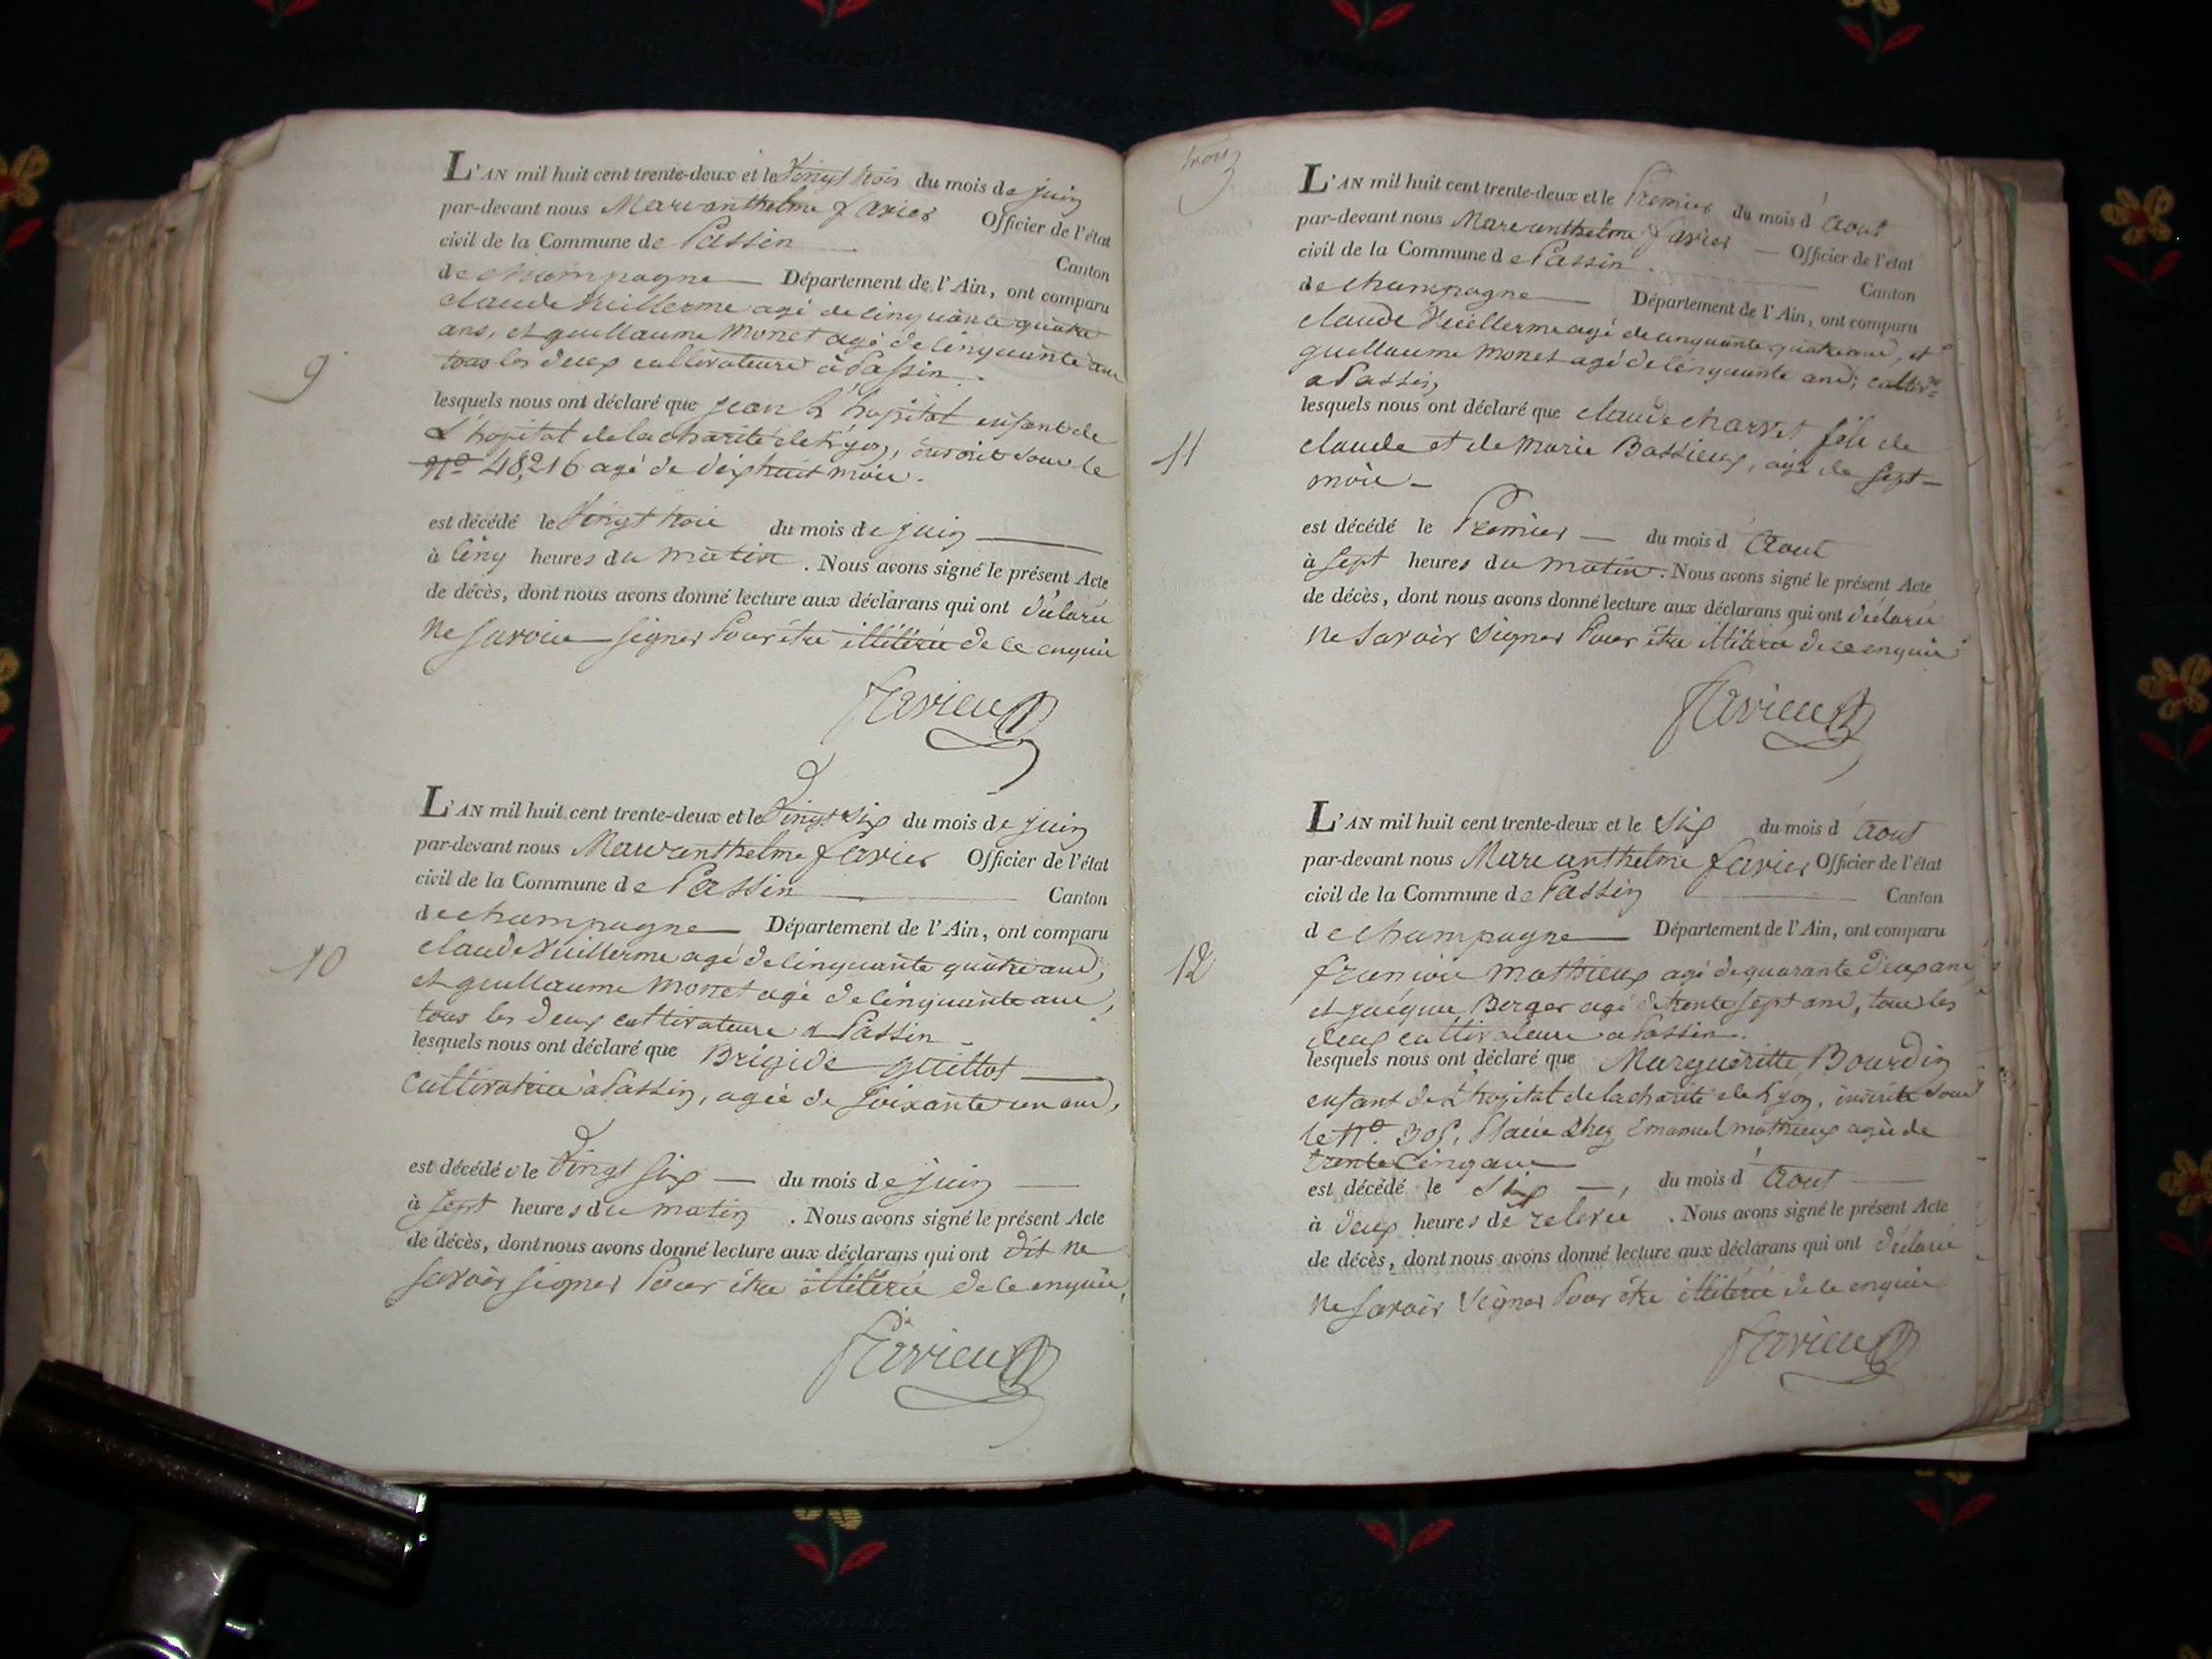 L'AN mil huit cent trente-deux et le vingt trois du mois de juin
par-devant nous Marc anthelme favier Officier de l'état
civil de la Commune de Passin Canton
de champagne Département de l'Ain, ont comparu
claude Vuillerme agé de cinquante quatre
ans, et guillaume Monet agé de cinquante ans
tous les deux cultivateurs à Passin.
9
lesquels nous ont déclaré que jean L'hopital enfant de
L'hopital de la charité de Lyon, sous le
No 48,216 agé de dix huit mois.
est décédé le vingt trois du mois de juin
à cinq heures du matin. Nous avons signé le présent Acte
de décès, dont nous avons donné lecture aux déclarans qui ont déclaré
ne savoir signer Pour être illitéré de ce enquis
favier
L'AN mil huit cent trente-deux et le vingt six du mois de juin
par-devant nous Marc anthelme favier Officier de l'état
civil de la Commune de Passin Canton
de champagne Département de l'Ain, ont comparu
claude Vuillerme agé de cinquante quatre ans,
10
et guillaume Monet agé de cinquante ans,
tous les deux cultivateurs à Passin
lesquels nous ont déclaré que Brigide guillot
Cultivatrice à Passin, agée de soixante un ans,
est décédée le vingt six du mois de juin
à sept heures du matin. Nous avons signé le présent Acte
de décès, dont nous avons donné lecture aux déclarans qui ont dit ne
savoir signer Pour être illitéré de ce enquis,
favier
trois
3
L'AN mil huit cent trente-deux et le Premier du mois d'aout
par-devant nous Marc anthelme favier Officier de l'état
civil de la Commune de Passin Canton
de champagne Département de l'Ain, ont comparu
claude Vuillerme agé de cinquante quatre ans, et
guillaume Monet agé de cinquante ans, cultivrs
a Passin,
lesquels nous ont déclaré que claude charvet fils de
11
claude et de Marie Bassieux, agé de sept
mois
est décédé le Premier du mois d'Aout
à sept heures du matin. Nous avons signé le présent Acte
de décès, dont nous avons donné lecture aux déclarans qui ont déclaré
ne savoir signer Pour être illitéré de ce enquis
favier
L'AN mil huit cent trente-deux et le six du mois d'aout
par-devant nous Marc anthelme favier Officier de l'état
civil de la Commune de Passin Canton
de champagne Département de l'Ain, ont comparu
12
francois mathieux agé de quarante deux ans
et jacques Berger agé de trente sept ans, tous les
deux cultivateurs a Passin.
lesquels nous ont déclaré que Marguéritte Bourdin
enfant de L'hopital de la charité de Lyon, inscrite sous
le No. Placée Chez Emanuel mathieux agée de
trente cinq ans
est décédé le six, du mois d'Aout
à deux heures de relevée. Nous avons signé le présent Acte
de décès, dont nous avons donné lecture aux déclarans qui ont déclaré
ne savoir signer Pour être illitéré de ce enquis
favier